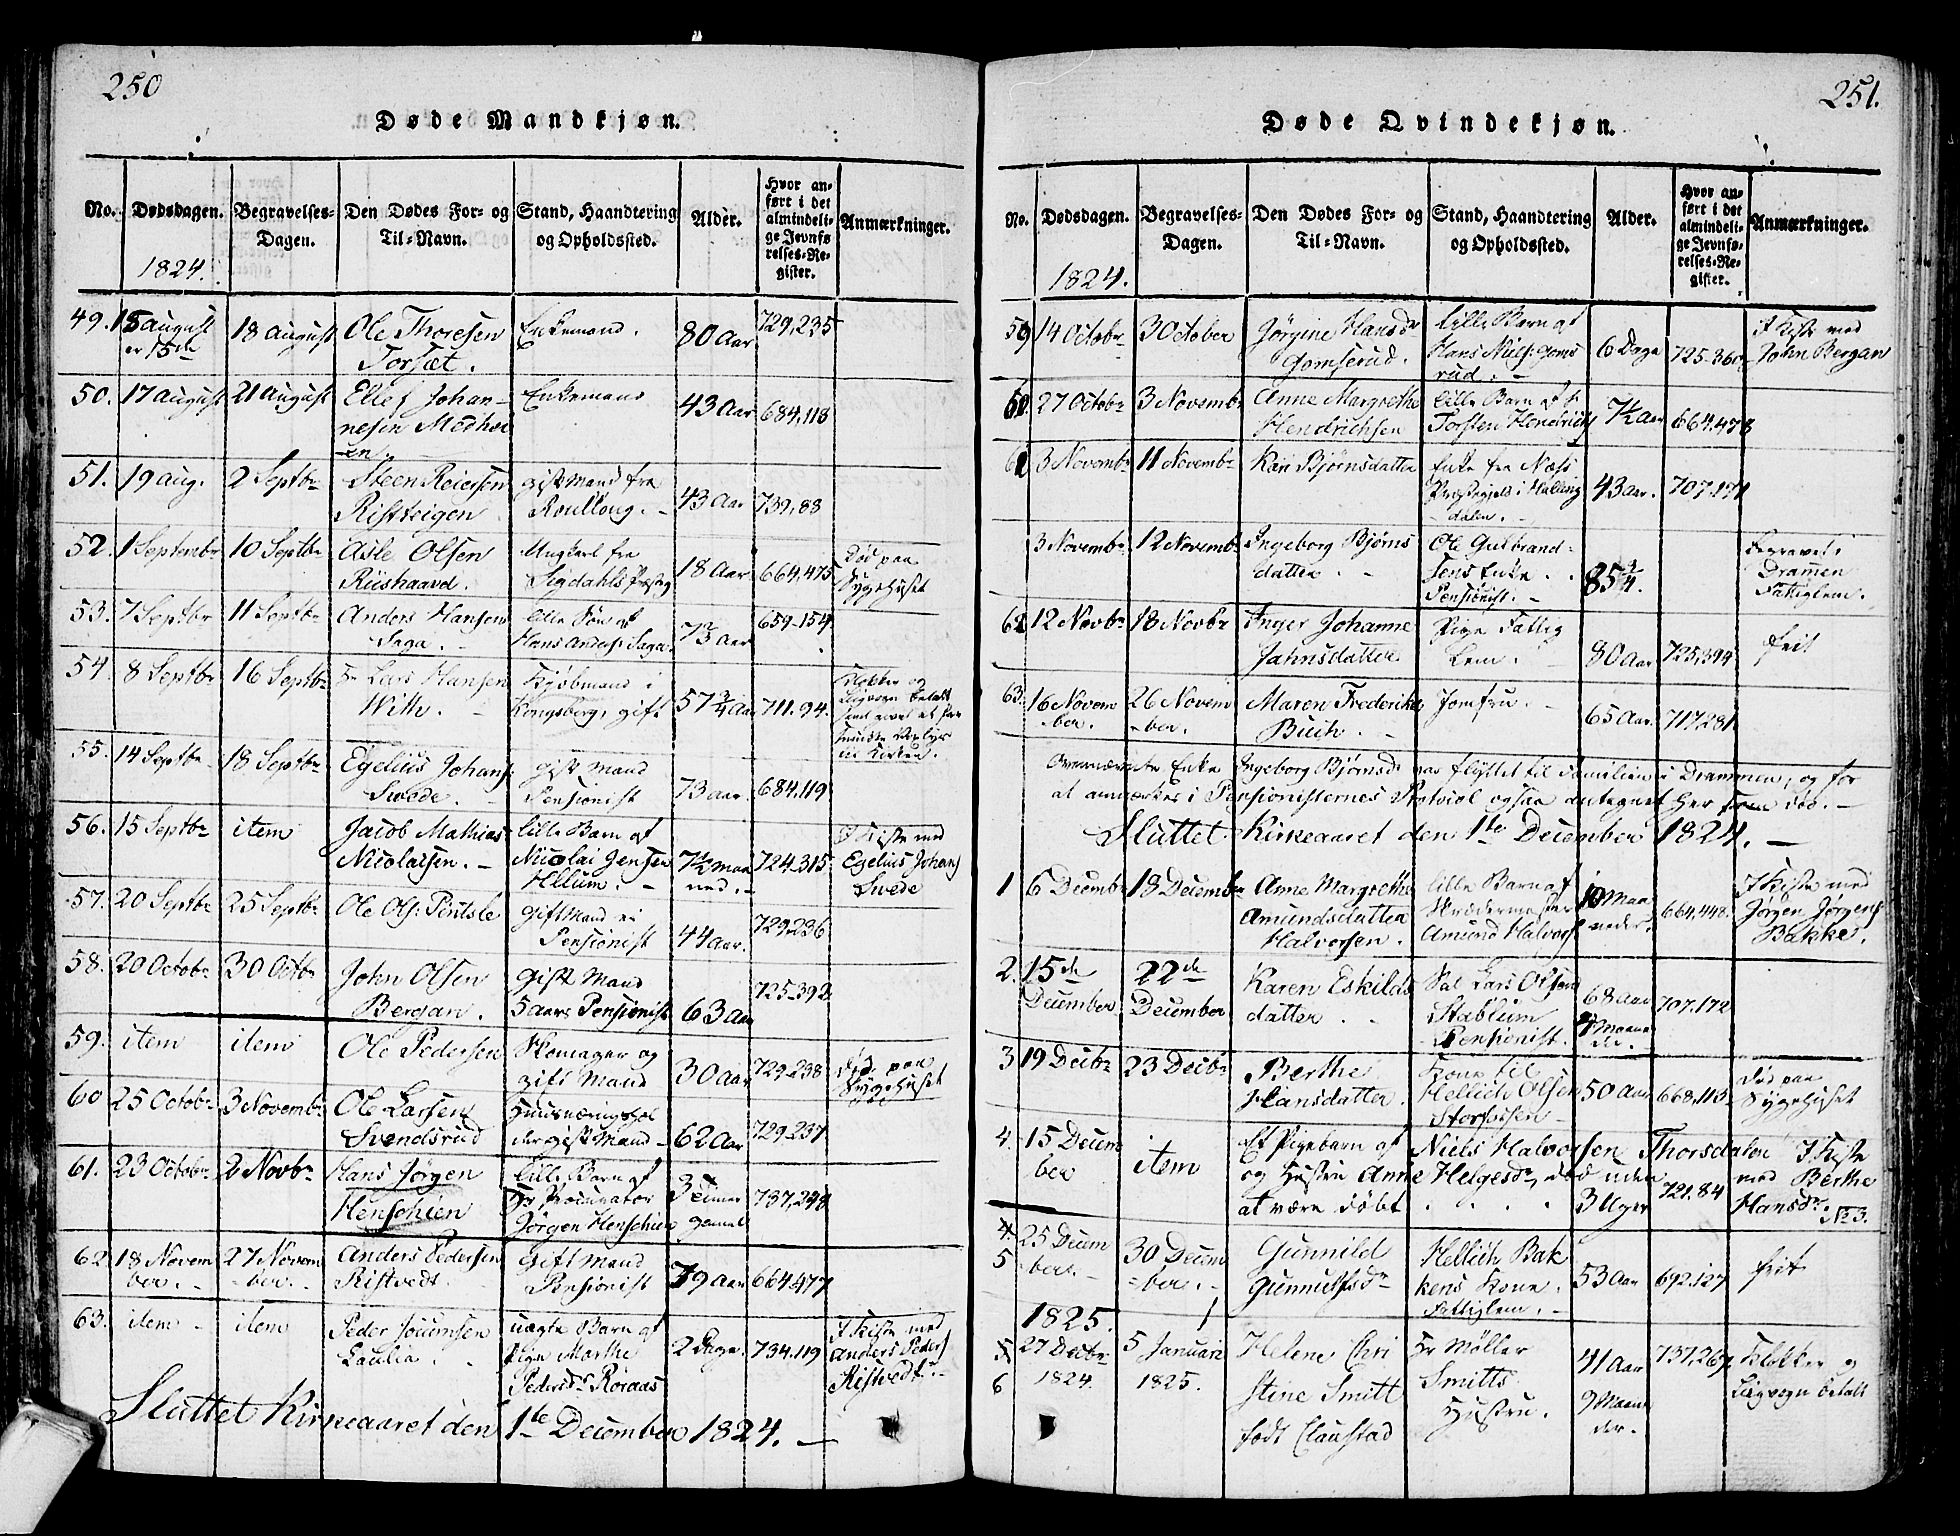 250
Døde Mandkjøn.
No. Dødsdagen. Begravelses-Dagen. Den Dødes For- og Til-Navn. Stand, Haandtering og Opholdssted. Alder. Hvor anført i det almindelige Jevnførelses-Register. Anmærkninger.
1824.
49. 15 august 18 august Ole Thoresen Enkemand. 80 Aar 729,235
er 15de Torsæt.
50. 17 august 21 august Ellef Johan- Enkemand 43 Aar 684,118
nesen
51. 19 aug. 2 Septbr Steen Reiersen gift Mand fra 43 Aar 739,88
Ristteigen
52. 1 Septembr 10 Septbr Asle Olsen Ungkarl fra 18 Aar 664,475 Død paa
Riishaavd. Sigdahls Præstg Sygehuset
53. 7 Septbr 11 Septbr Anders Hansen lille Søn af 659-154
Saga. Hans Anders: Saga
54. 8 Septbr 16 Septbr Hr Lars Hansen Kjøbmand i 57 3/4 Aar 711.94. Klokker og
With. Kongsberg, gift Ligvogn betalt
til Kirken.
55. 14 Septbr 18 Septbr Egelius Johans: gift Mand 73 Aar. 684,119
Swede. Pensionist
56. 15 Septbr item Jacob Mathias lille Barn af 7½ Maa 724.315 I Kiste med
Nicolaisen. Nicolai Jensen ned. Egelius Johans
Hllum. Swede
57. 20 Septbr 25 Septbr Ole Ols: Pentsle Gift Mand
Pensionist 44 Aar. 729-236
58. 20 Octobr 30 Octbr John Olsen Gift Mand 725-392
Bergan. Pensionist 63 Aar
59. item item Ole Pedersen Skomager og 30 Aar 729-238 død paa
gift Mand Sygehuset
60 25 Octobr 3 Novembr Ole Larsen Huusnæringshol
Svendsrud der gift Mand 62 Aar 729-237
61. 23 Octobr 2 Novbr Hans Jørgen lille Barn af 3 Timer 737,248
Henschien Hr Procurator gamel
Jørgen Henschien
62 18 Novem 27 Novem Anders Pedersen Gift Mand
ber. ber. Ristvedt. Pensionist 79 Aar 664.477
63. item item Peder uægte Barn af I Kiste med
Laulia. Pige Marthe 2 Dage. 734.119 Anders Peders
Pedersdr Roraas Ristvedt.
Sluttet Kirkeaaret den 1te December 1824. —
251.
Døde Qvindekjøn.
No. Dødsdagen. Begravelses-Dagen. Den Dødes For- og Til-Navn. Stand, Haandtering og Opholdssted. Alder. Hvor anført i det almindelige Jevnførelses-Register. Anmærkninger.
1824.
59 14 Octobr 30 October Jørgine Hansdr lille Barn af I Kiste med
Gomserud. Hans Niels: Goms 6 Dage 725.360 John Bergan
rud.
60 27 Octobr 3 Novembr Anne Margrethe lille Barn af
Hendrichsen Torsten Hendrichs 7½ Aar 664.478
61 3 Novembr 11 Novembr Kari Bjørnsdatter Enke fra Næss
Præstegjeld i Halling 43 Aar. 707.171
dalen.
3 Novembr 12 Novembr Ingeborg Bjørns Ole Gulbrand- Begravet i
datter. sens Enke. 85 3/4. Drammen
Pensionist. Fattiglem.
62 12 Novbr 18 Novbr Inger Johanne Pige Fattig frit
Jahnsdatter Lem. 80 Aar 725,394
63. 16 Novem 26 Novem Maren Frederike Jomfru. 65 Aar. 717.281
ber. ber. Buch.
Ovennævnte Enke Ingeborg Bjørnsd: var flyttet til Familien i Drammen, og for
at anmærkes i Pensionisternes Protocol ogsaa antegnet her som død. —
Sluttet Kirkeaaret den 1te December 1824. —
1 6 Decembr 18 Decembr Anne Margrethe lille Barn af 10 Maa I Kiste med
Amundsdatter Skrædermester neder. 664,448. Jørgen Jørgens
Halvorsen. Amund Halvors Bakke.
2. 15de 22de Karen Eskilds Sal Lars Olsen
December December datter. Stablum 68 Aar 707.172
Pensionist. 4 Maane
der.
3 19 Decbr 23 Decbr Berthe Kone til Død paa
Hansdatter. Hellich Olsen 50 Aar 668,113 Sygehuset
4. 15 Decem item Et Pigebarn af Niels Halvorsen Thorsdalen I Kiste
ber og Hustru Anne Helgesdr, død uden med Berthe
at være døbt . . . . 3 Uger 721.84 Hansdr. No 3.
4 25 Decem 30 Decem Gunnild Hellich Bak
5 ber. ber. Gunnulfsdr kens Kone. 53 Aar 692.127 frit
Fattiglem.
1825.
5 27 Decbr 5 Januari Helene Chri Hr Møller 41 Aar 737,267, Klokker og
6 1824. 1825. stine Smitt Smitts 9 Maane Ligvogn betalt
født Claustad Hustru. der.